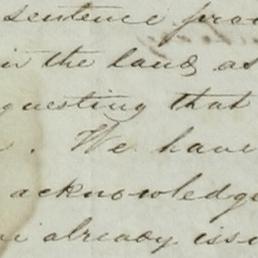 sentence pro
in the land, as
questing that
. We have
acknowledge
already iss